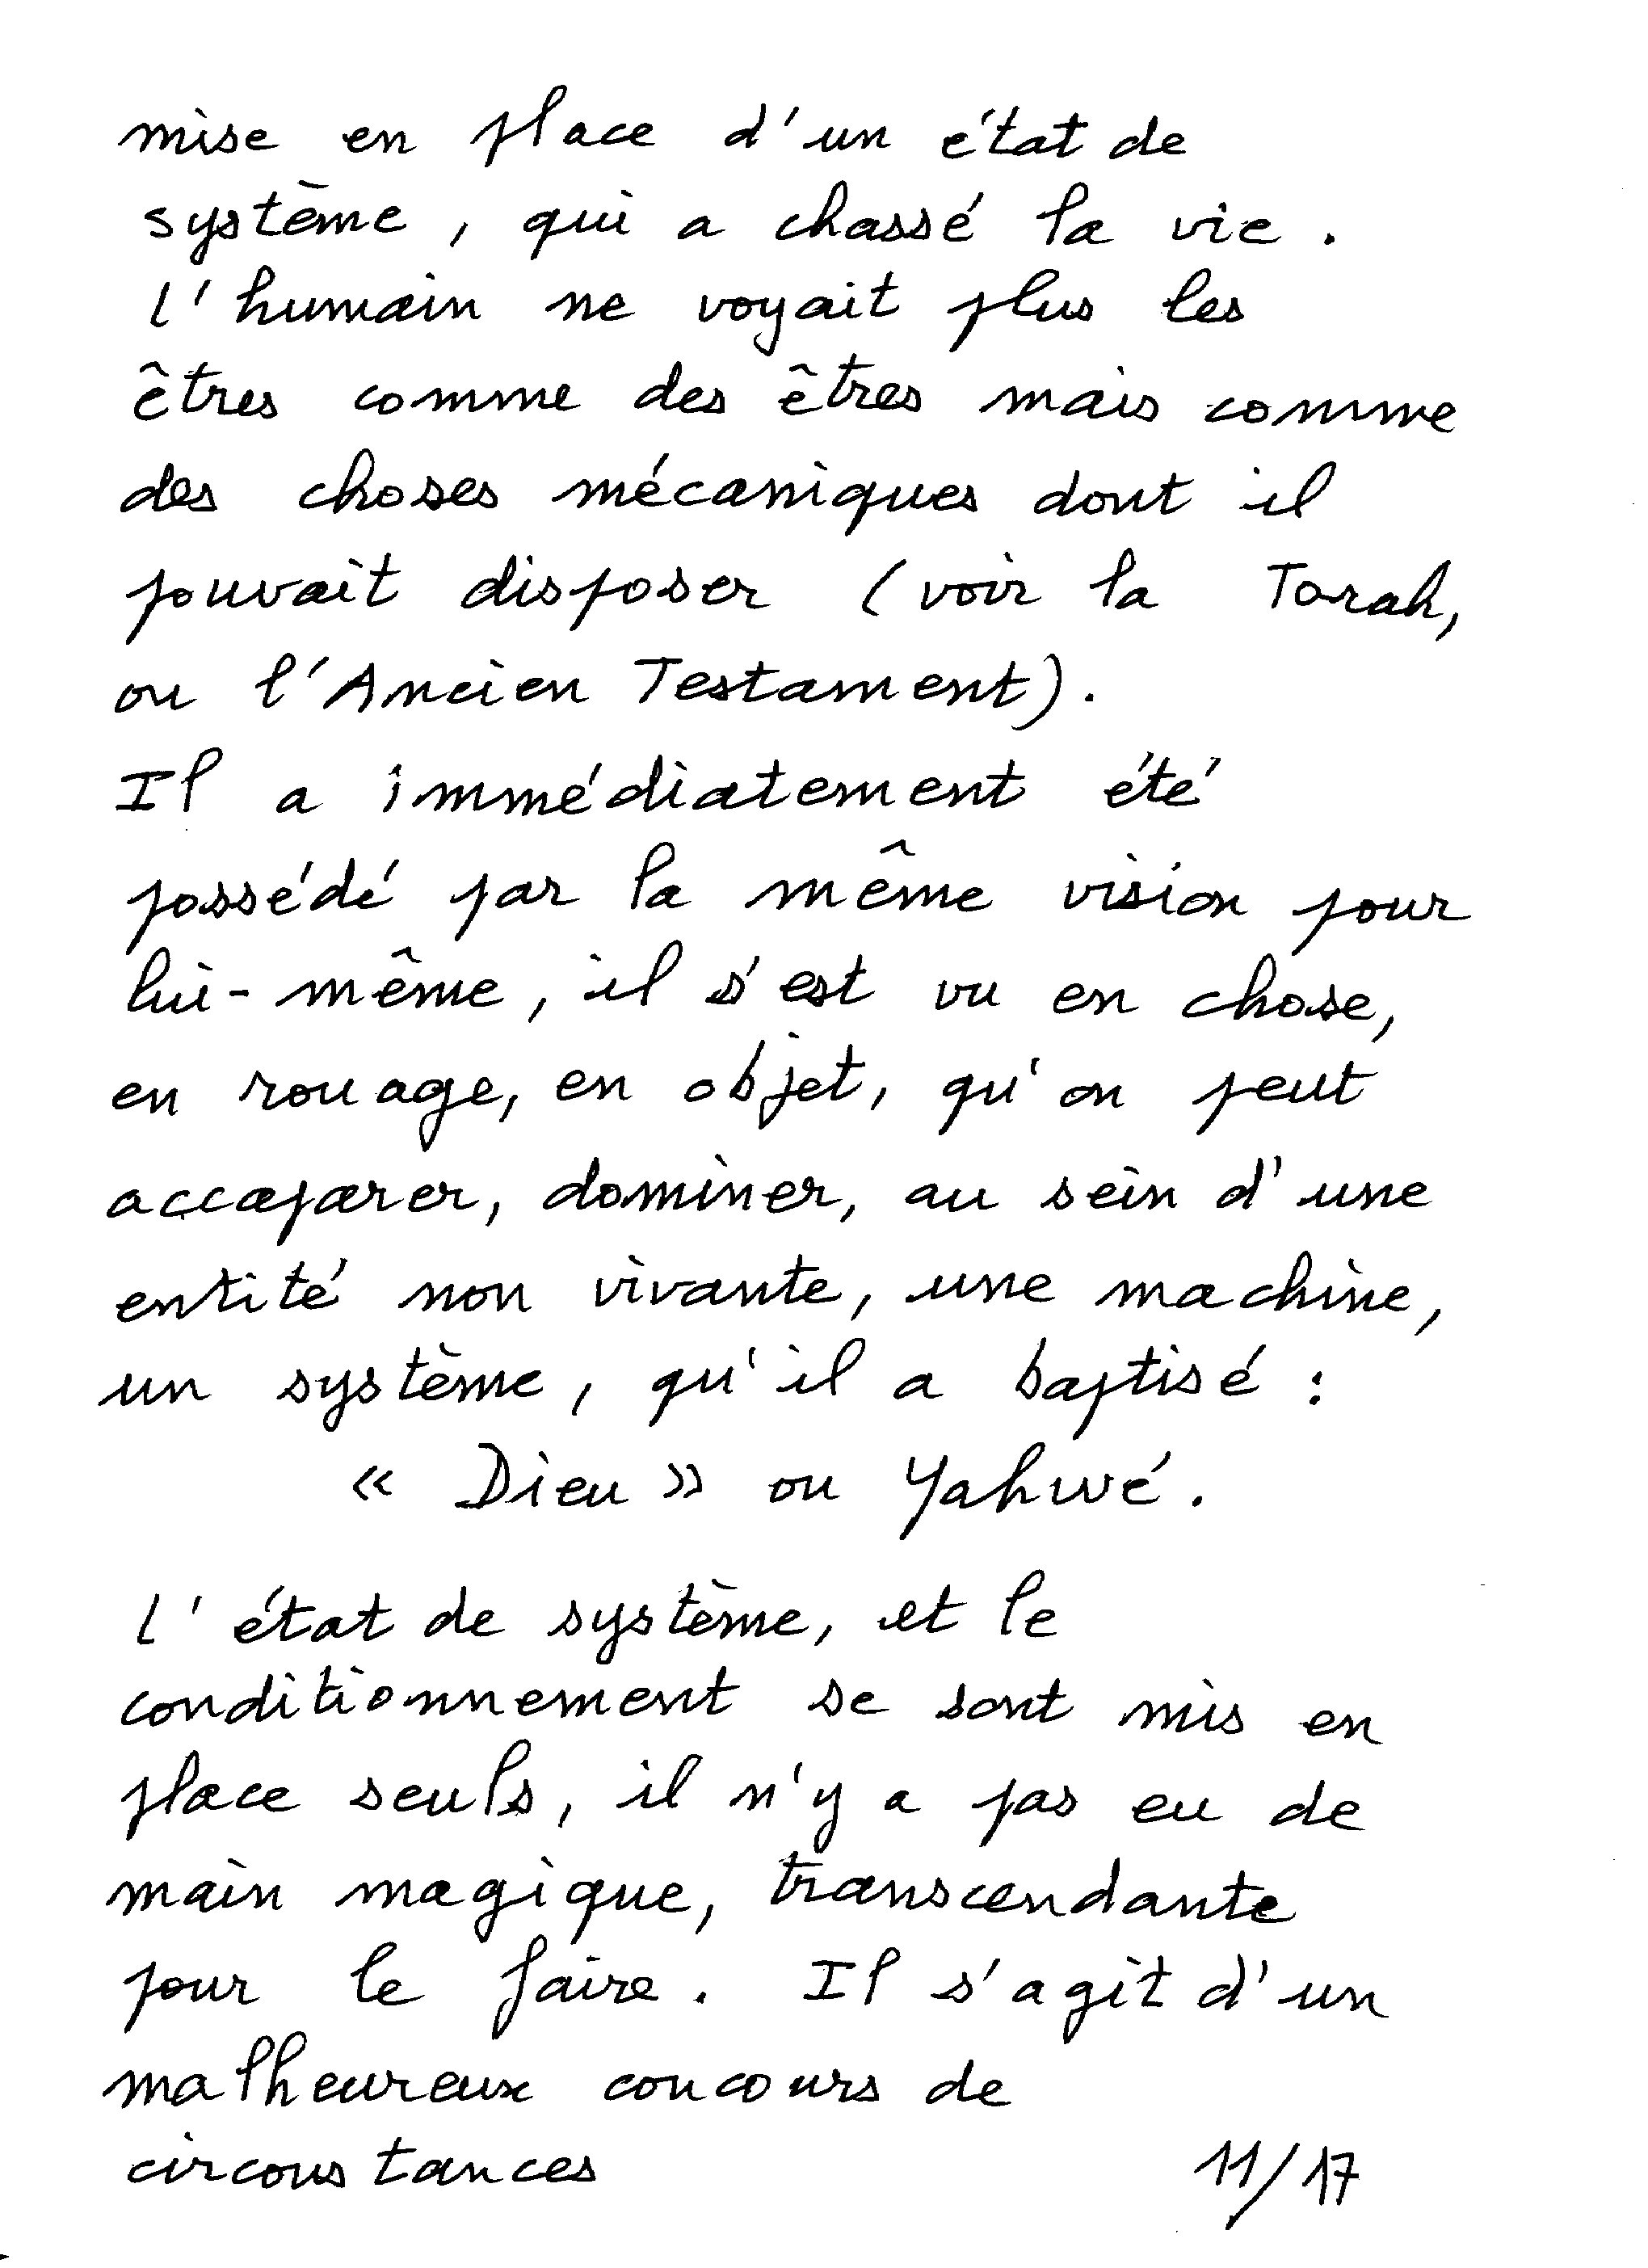 mise en place d'un état de
système, qui a chassé la vie.
L'humain ne voyait plus les
êtres comme des êtres mais comme
des choses mécaniques dont il
pouvait disposer (voir la Torah,
ou l'Ancien Testament).
Il a immédiatement été
possédé par la même vision pour
lui-même, il s'est vu en chose,
en rouage, en objet, qu'on peut
accaparer, dominer, au sein d'une
entité non vivante, une machine,
un système, qu'il a baptisé :
« Dieu » ou Yahwé.
L'état de système, et le
conditionnement se sont mis en
place seuls, il n'y a pas eu de
main magique, transcendante
pour le faire. Il s'agit d'un
malheureux concours de
circonstances
11/17